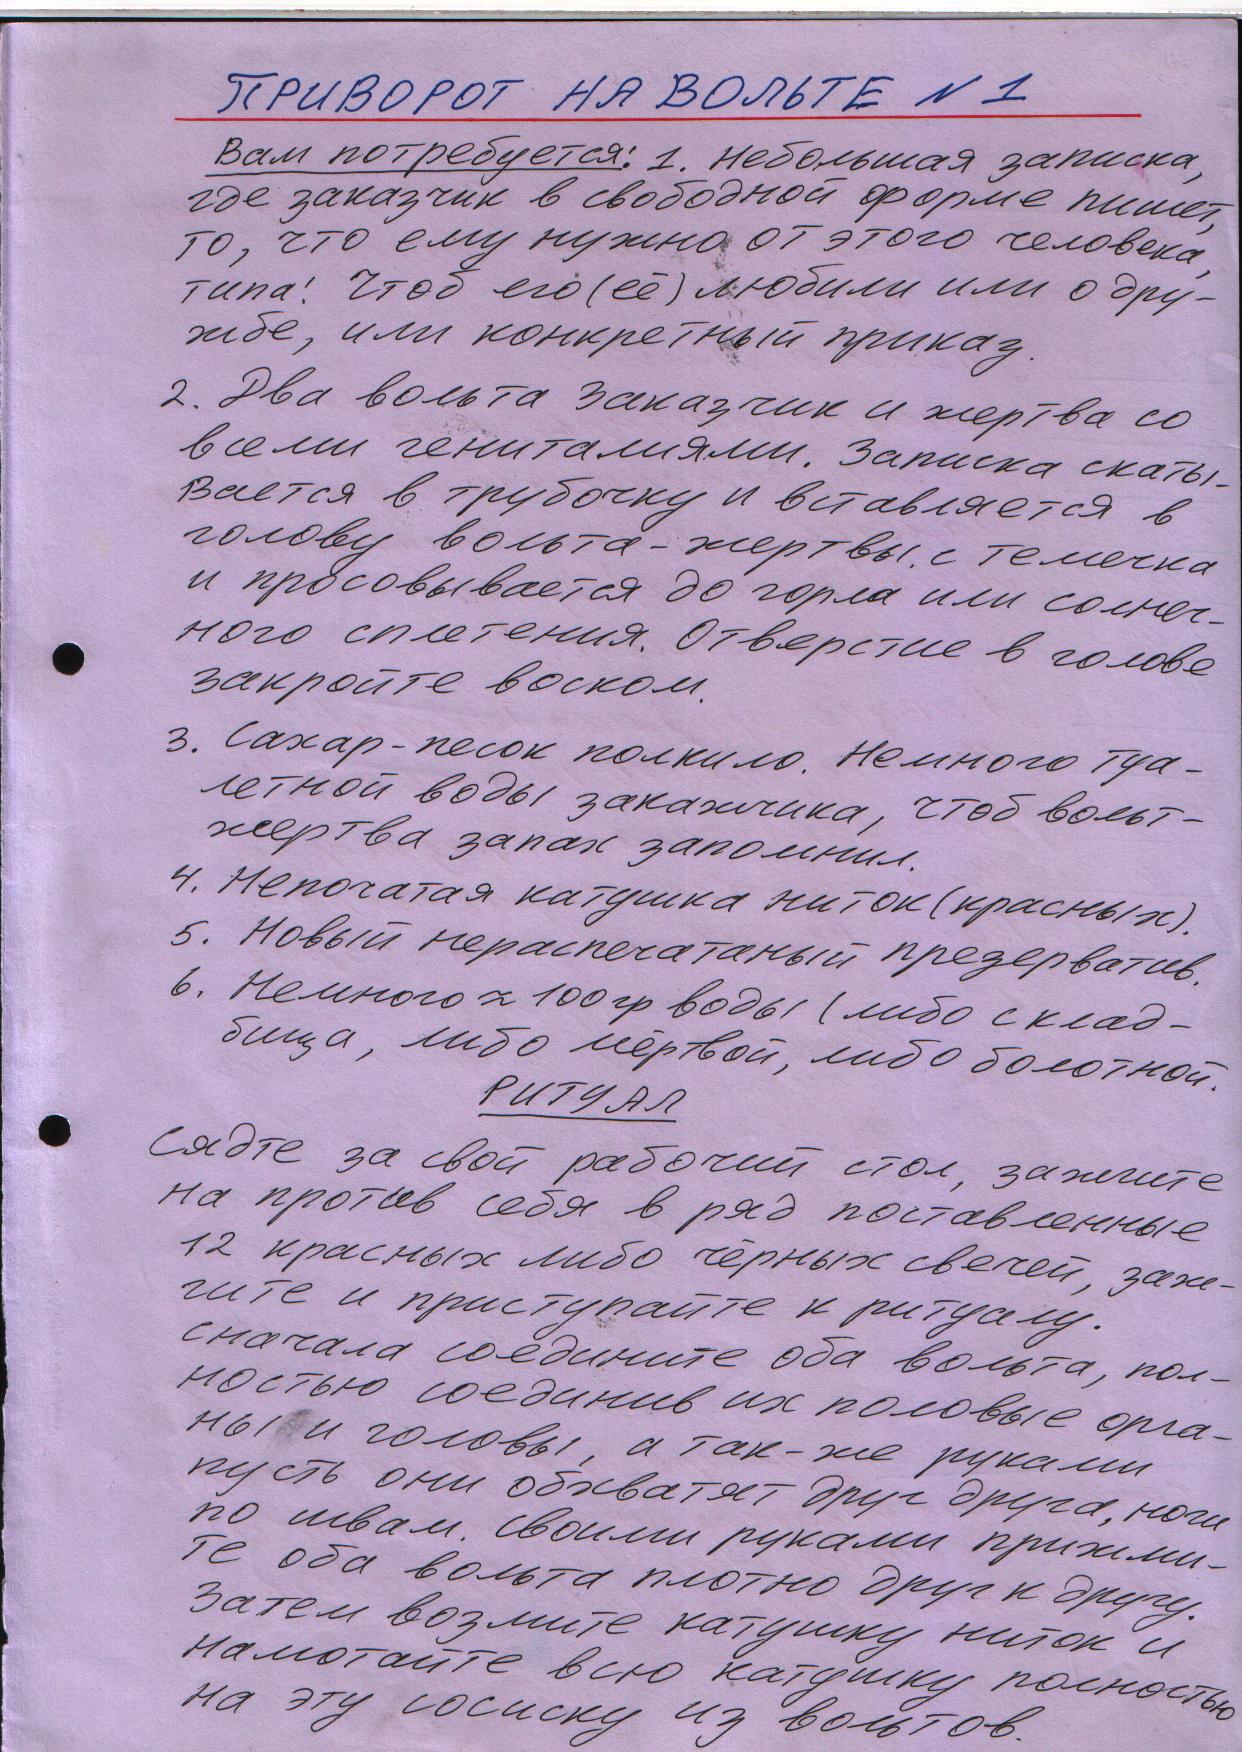 ПРИВОРОТ НА ВОЛЬТЕ N 1
Вам потребуется: 1. Небольшая записка,
где заказчик в свободной форме пишет,
то, что ему нужно от этого человека,
типа! Чтоб его (её) любили или о дру-
жбе, или конкретный приказ.
2. Два вольта Заказчик и жертва со
всеми гениталиями. Записка скаты-
вается в трубочку и вставляется в
голову вольта-жертвы. с темечка
и просовывается до горла или солнеч-
ного сплетения. Отверстие в голове
закройте воском.
3. Сахар-песок полкило. Немного туа-
летной воды заказчика, чтоб вольт-
жертва запах запомнил.
4. Непочатая катушка ниток (красных).
5. Новый нераспечатаный презерватив.
6. Немного ≈ 100гр воды (либо с клад-
бища, либо мёртвой, либо болотной.
РИТУАЛ
Сядте за свой рабочий стол, зажгите
на против себя в ряд поставленные
12 красных либо чёрных свечей, заж-
гите и приступайте к ритуалу.
Сначала соедините оба вольта, пол-
ностью соединив их половые орга-
ны и головы, а так-же руками
пусть они обхватят друг друга, ноги
по швам. Своими руками прижми-
те оба вольта плотно друг к другу.
Затем возмите катушку ниток и
намотайте всю катушку полностью
на эту сосиску из вольтов.